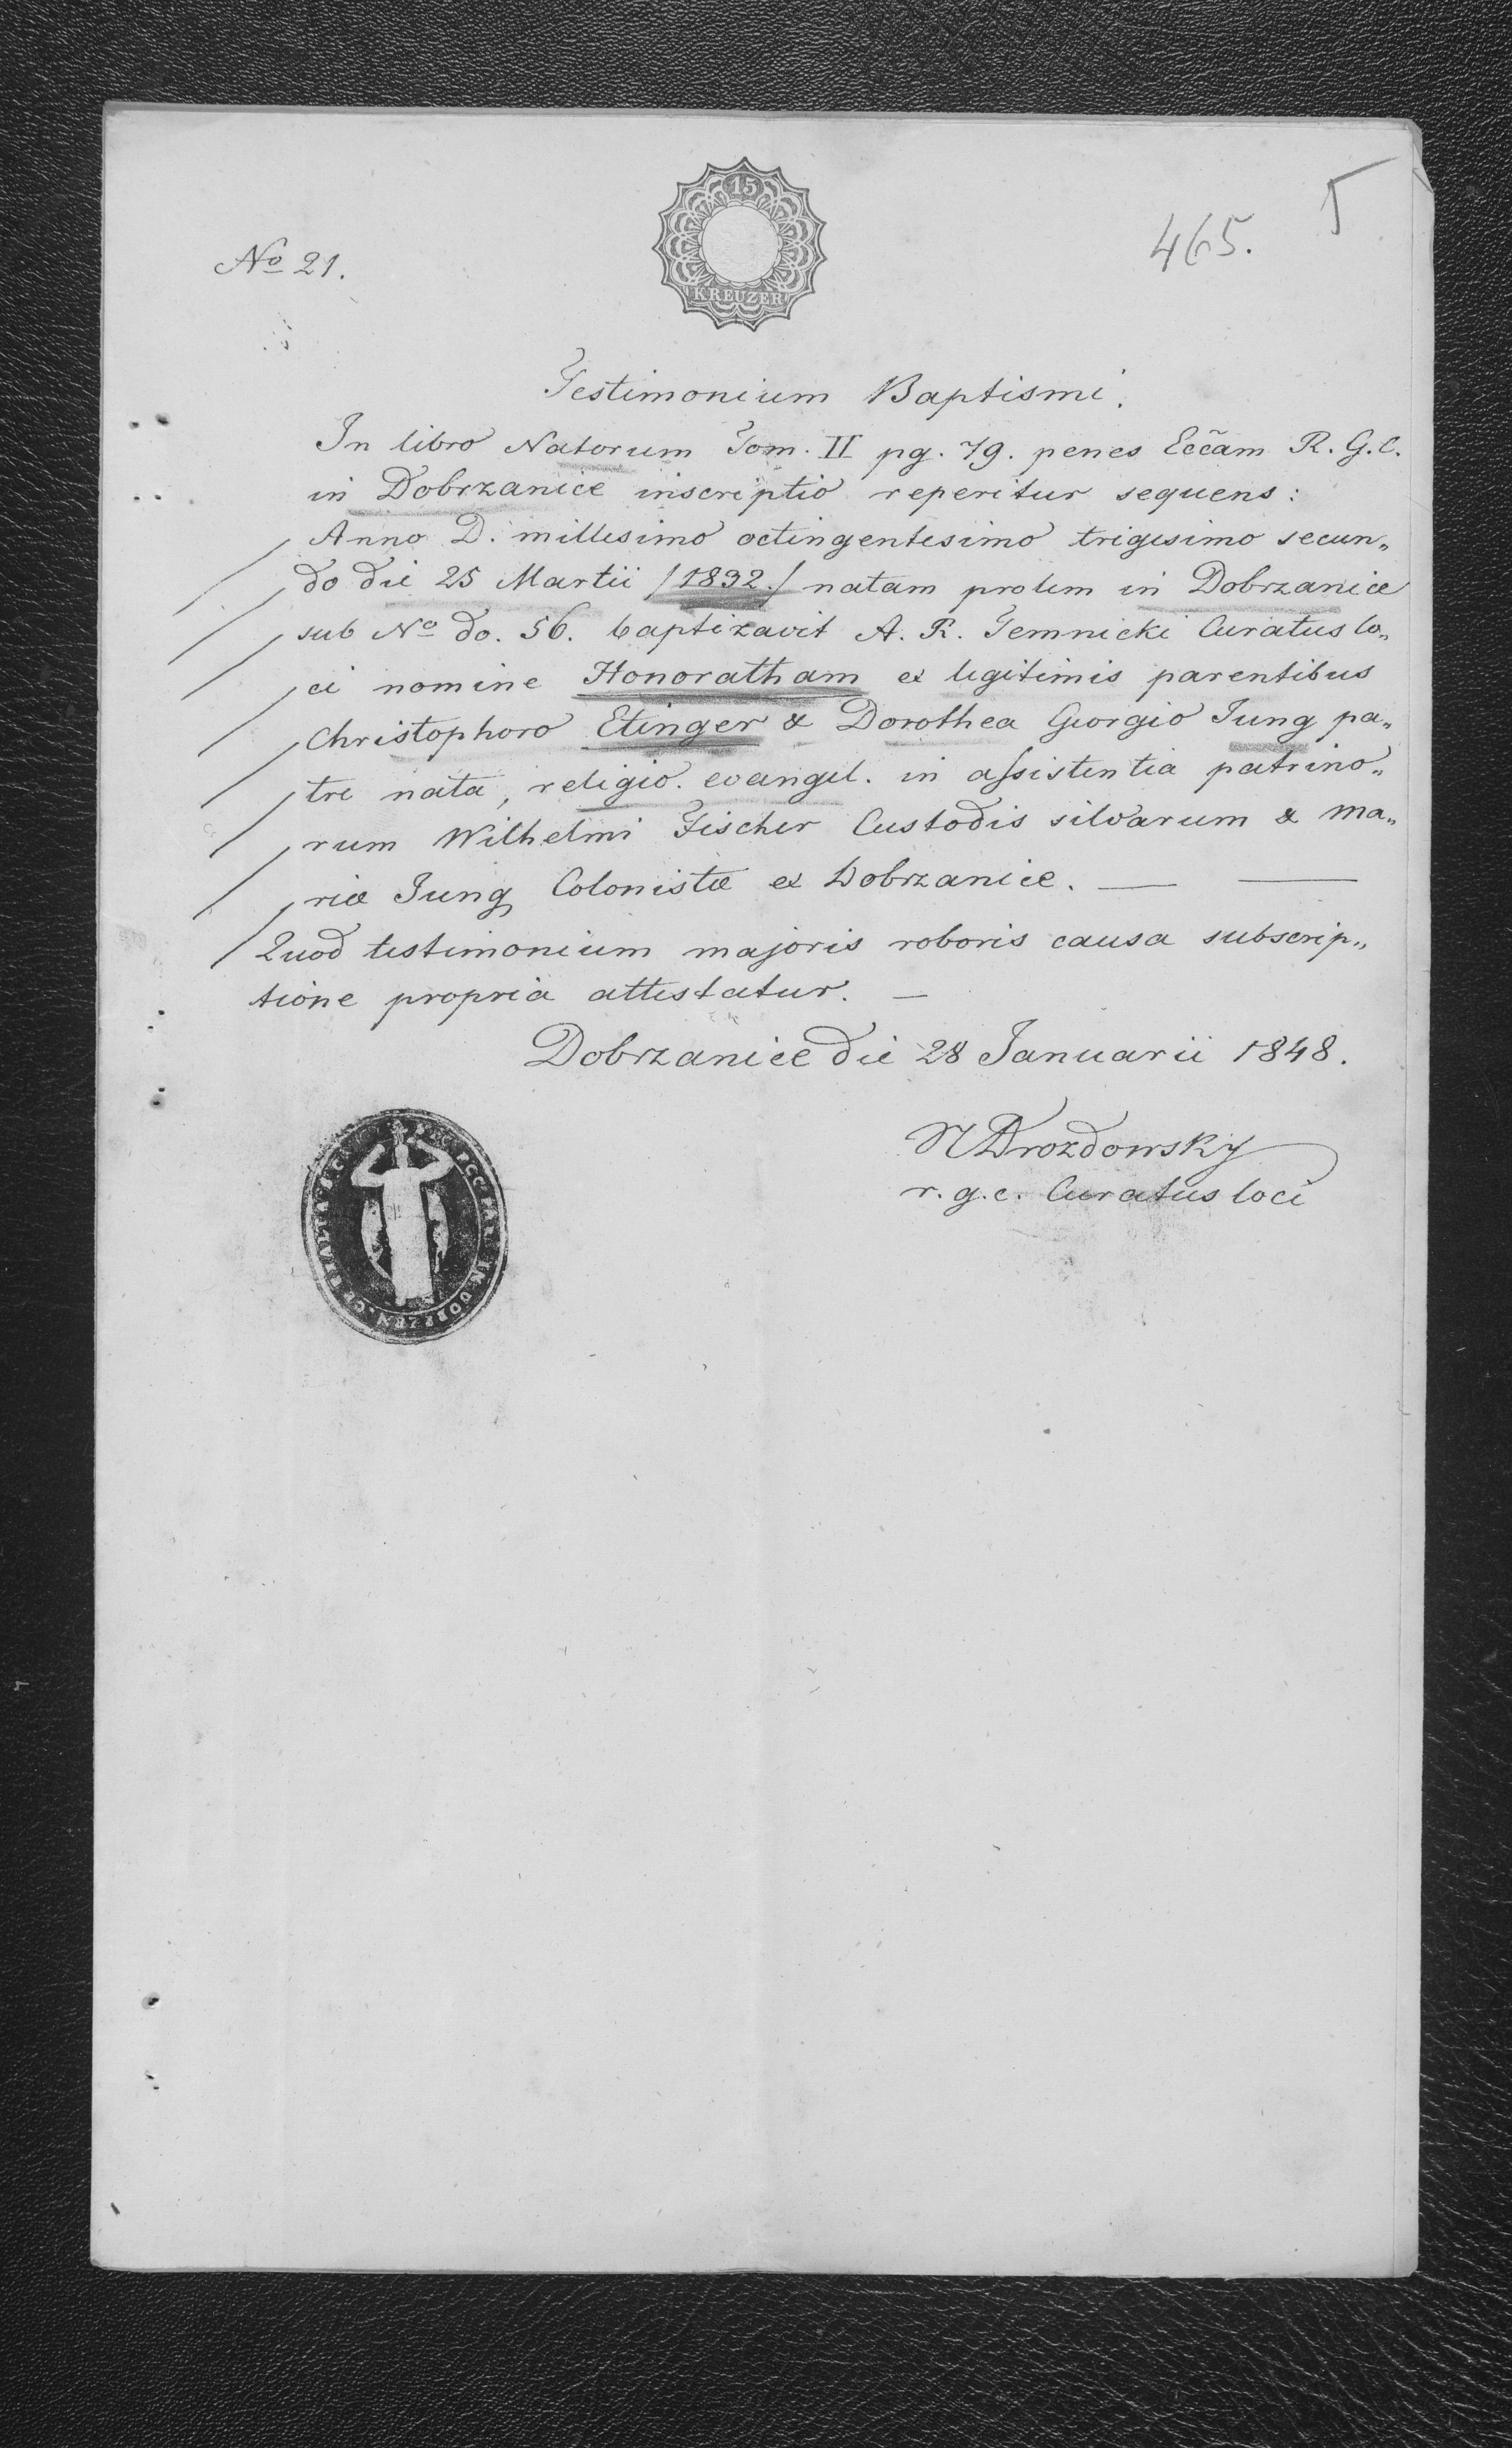 15
KREUZER
5
465.
No 21.
Testimonium Baptismi.
In libro Natorum Tom. II pg. 79. penes Eccam R. G. C.
in Dobrzanice inscriptio reperitur sequens:
Anno D. millesimo octingentesimo trigesimo secun„
do die 25 Martii /1832./ natam prolem in Dobrzanice
sub No do. 56. baptizavit A. R. Temnicki Curatus lo„
ci nomine Honoratham ex legitimis parentibus
Christophoro Etinger & Dorothea Georgio Jung pa„
tre nata, religio. evangel. in assistentia patrino„
rum Wilhelmi Fischer Custodis silvarum & Ma„
riæ Jung Colonistæ ex Dobrzanice. — —
Quod testimonium majoris roboris causa subscrip„
tione propria attestatur. —
Dobrzanice die 28 Januarii 1848.
N Drozdowsky
r. g. c. Curatus loci